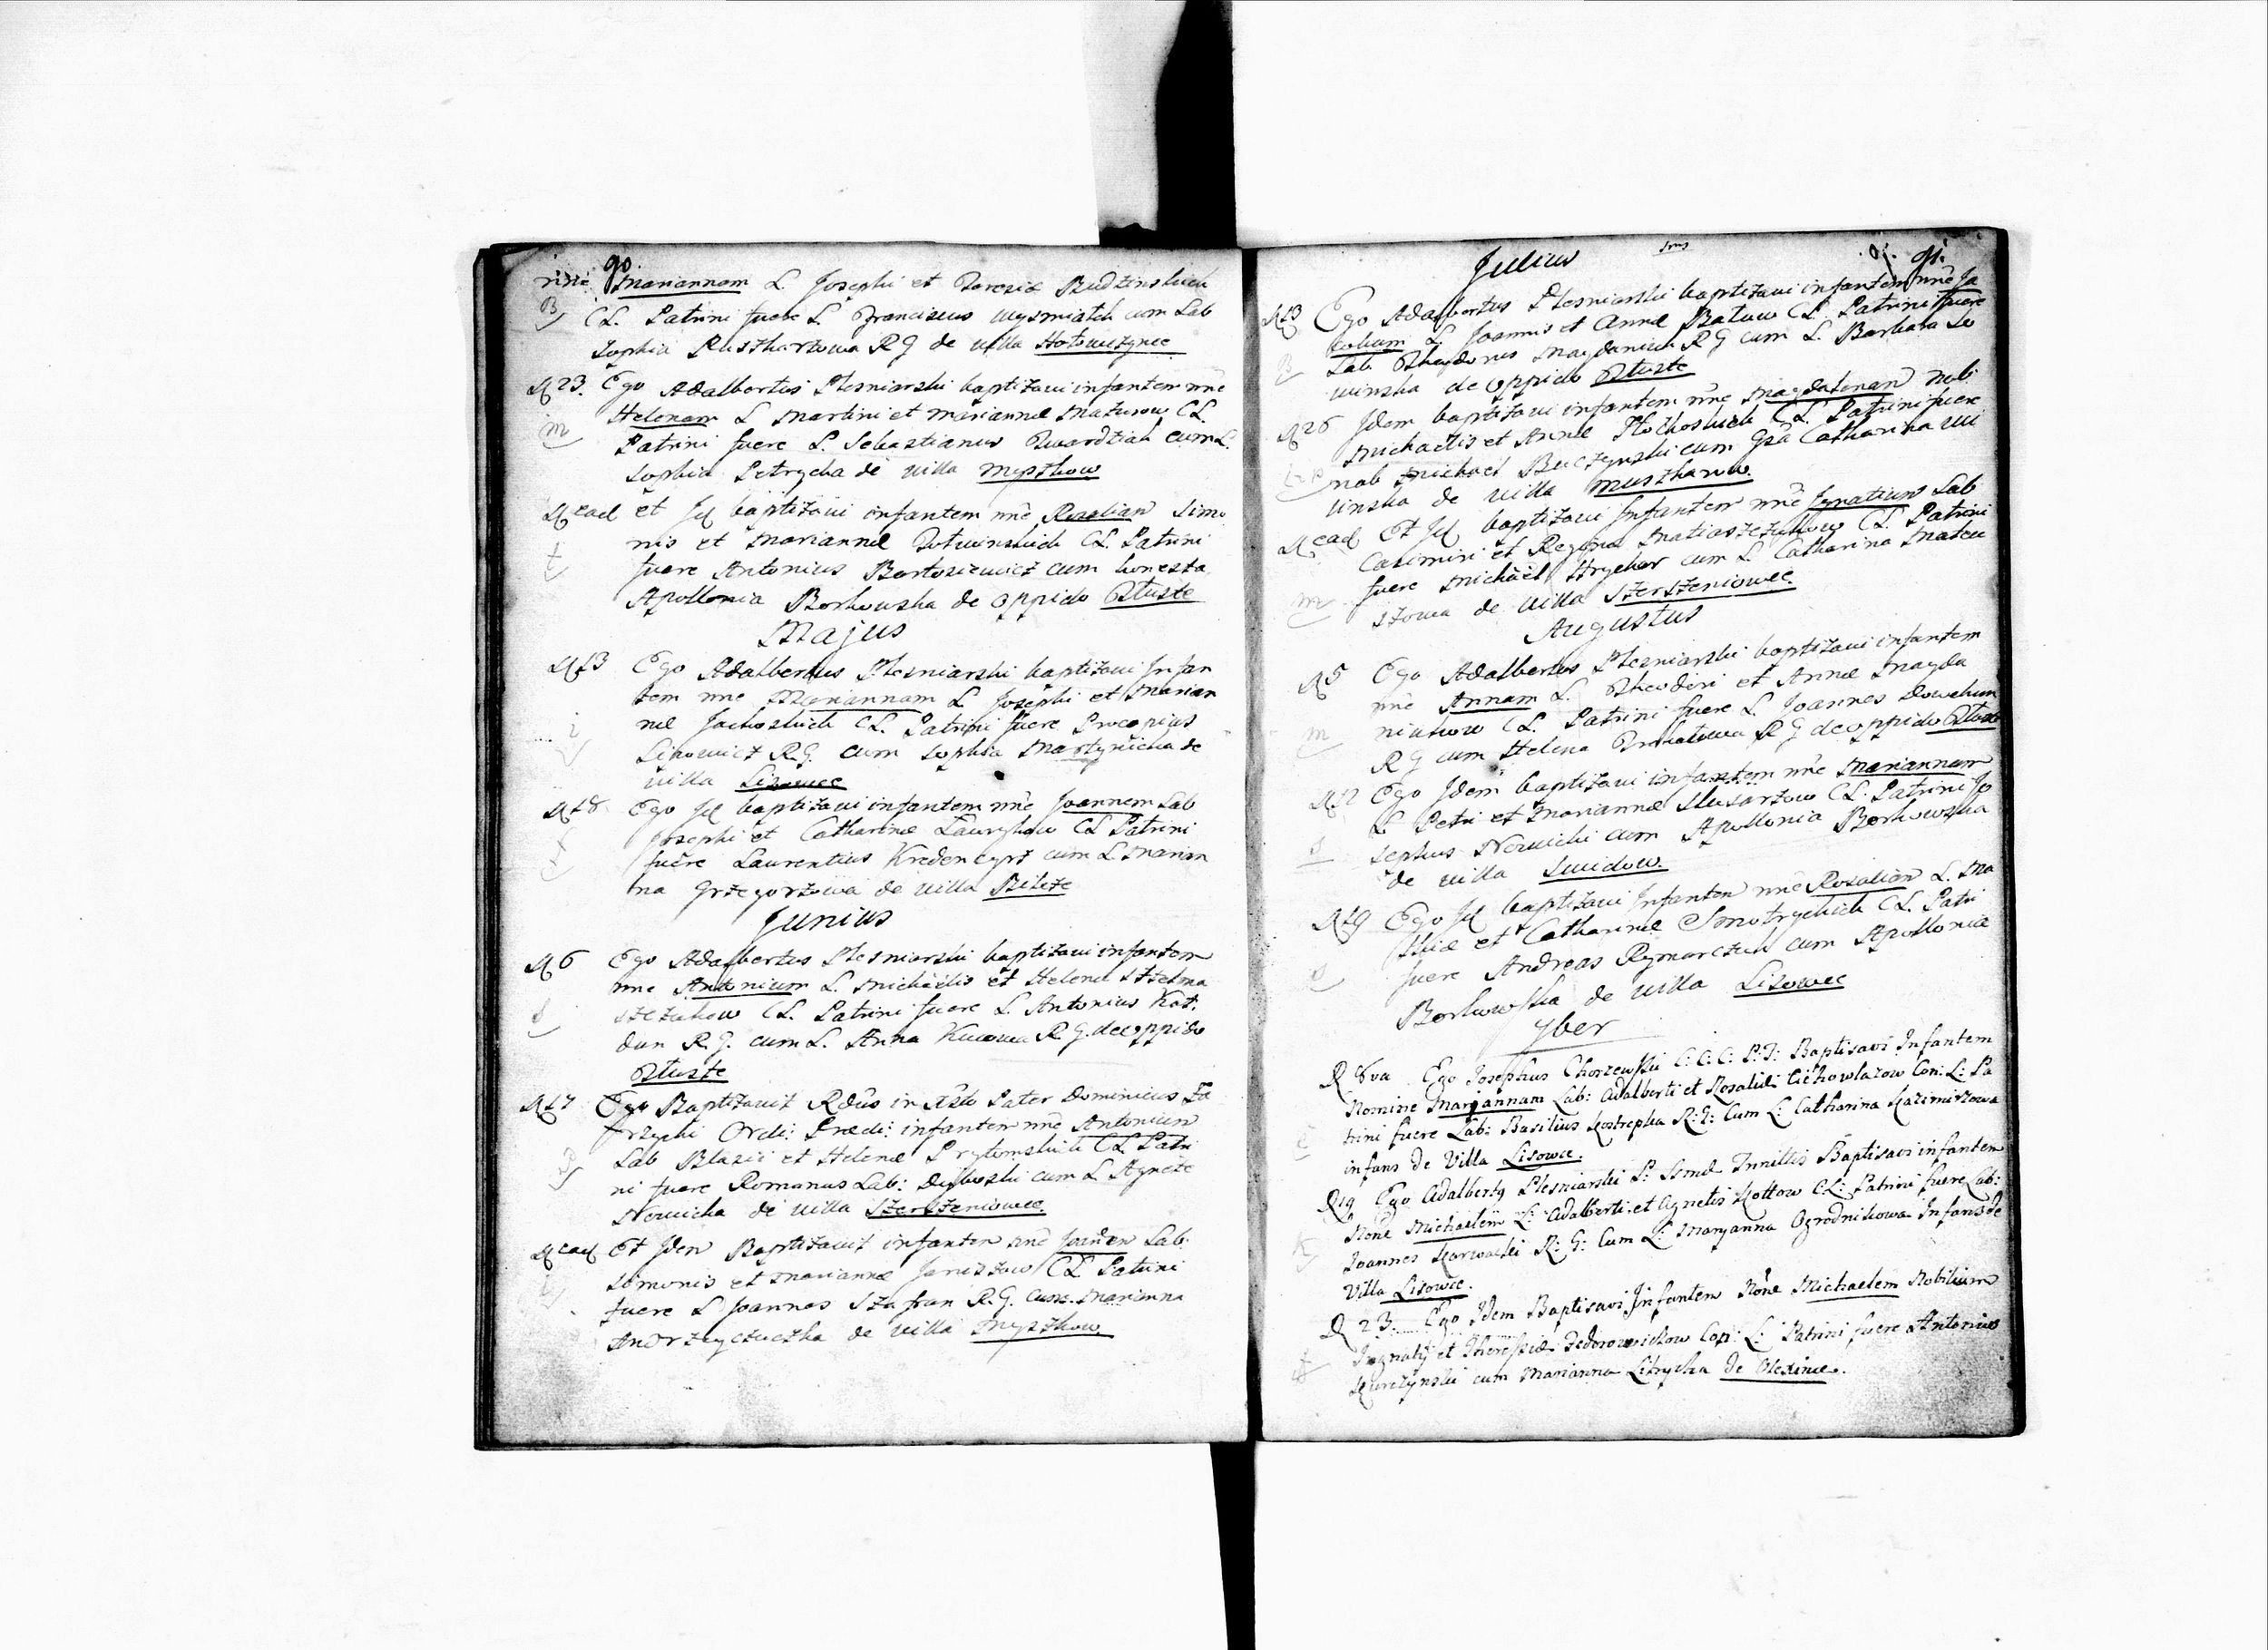 90
nne Mariannam L. Josephi et Teresiæ Budzinskich
B CL. Patrini fuere L. Franciscus Wysmiatek cum Lab
Sophia Ruszkarzowa RG de villa Hołowczynce
D 23. Ego Adalbertus Plesniarski baptizavi infantem nne
Helenam L Martini et Mariannæ Mazurow CL.
M Patrini fuere L. Sebastianus Twardziak cum L.
Sophia Petrycha de villa Myszkow
D ead et Id baptizavi infantem nne Rosaliam Simo
nis et Mariannæ Potwinskich CL. Patrini
fuere Antonius Bartosiewicz cum honesta
Apollonia Borkowska de oppido Tłuste
Majus
D 13 Ego Adalbertus Plesniarski baptizavi Infan
tem nne Mariannam L Josephi et Marian
næ Jackoskich CL. Patrini fuere Procopius
Lipowicz R.G. cum Sophia Martynicha de
villa Lisowce
D 18 Ego Id baptizavi infantem nne Joannem Lab
Josephi et Catharinæ Laurykow CL Patrini
fuere Laurentius Kredencyrz cum L Marian
na Grzegorzowa de villa Bilcze
Junius
D 6 Ego Adalbertus Plesniarski baptizavi infantem
nne Antonium L. Michaëlis et Helenæ Stelma
szczukow CL. Patrini fuere L. Antonius Kot.
dun R.G. cum L. Anna Kucowa R.G. de oppido
Tłuste
D 17 Ego Baptizavit Rdus in Xsto Pater Dominicus Za
krzycki Ordi: Prædi: infantem nne Antonium
Lab Blasii et Helenæ Prytomskich CL Patri
ni fuere Romanus Lab: Dęboski cum L Agnete
Nowicka de villa Szerszeniowce
D ead Et Idem Baptizavit infantem nne Joannem Lab:
Simonis et Mariannæ Janiszow CL Patrini
fuere L Joannes Szafran R.G. cum Marianna
Andrzeyczuczka de villa Myszkow
Julius
91.
D 13 Ego Adalbertus Plesniarski baptizavi infantem nne Ja
cobum L. Joannis et Annæ Batuw CL. Patrini fuere
Lab Theodorus Magdaniuk RG cum L. Barbara Le
winska de oppido Tłuste
D 26 Idem baptizavi infantem nne Magdalenam nob:
Michaëlis et Annæ Płochoskich CL. Patrini fuere
nob Michaël Buczynski cum Gsa Catharina Wi
linska de villa Muszkarow.
D ead Et Id baptizavi Infantem nne Ignatium Lab
Casimiri et Reginæ Matiaszczukow CL. Patrini
fuere Michaël Hrychor cum L Catharina Mateu
szowa de villa Szerszeniowce.
Augustus
D 5 Ego Adalbertus Plesniarski baptizavi infantem
nne Annam L. Theodori et Annæ Magda
niukow CL. Patrini fuere L. Joannes Dowehun
RG cum Helena RG de oppido Tłuste
D 12 Ego Idem baptizavi infantem nne Mariannam
L. Petri et Mariannæ Slusarzow CL. Patrini Jo
sephus Nowicki cum Apollonia Borkowska
de villa Swidow.
D 19 Ego Id baptizavi Infantem nne Rosaliam L. Ma
thiæ et Catharinæ Smotryckich CL. Patri
fuere Andreas Rymarczuk cum Apollonia
Borkowska de villa Lisowce
7ber
D 8va Ego Josephus Chorzewski C: C: C: P: T: Baptisavi Infantem
Nomine Marjannam Lab: Adalberti et Rosaliæ Cichowlazow Con: L: Pa
trini fuere Lab: Basilius Kostrepka R: G: Cum L: Catharina Kazimirzowa
infans de Villa Lisowce.
D 19 Ego Adalbertg Plesniarski Baptisavi infantem
None Michaelem L: Adalberti et Agnetis Kottow C:L: Patrini fuere Lab:
Joannes Karwacki R: G: Cum L: Marjanna Ogrodnikowa Infans de
Villa Lisowce.
D 23. Ego Idem Baptisavi Infantem None Michaelem Nobilium
Ingnatÿ et Theressiæ Fedorowiczow Con: L: Patrini fuere Antonius
Kurczynski cum Marianna Litrycka de Olexince.